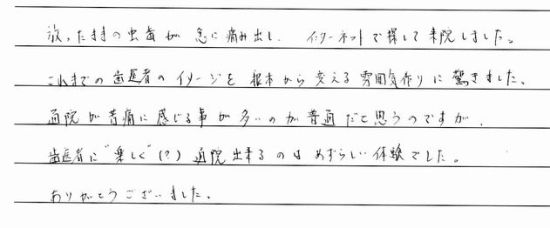 放ったままの虫歯が 急に痛み出し、インターネットで探して来院しました。
これまでの歯医者のイメージを 根本から変える雰囲気作りに驚きました。
通院が苦痛に感じる事が多いのが普通だと思うのですが、
歯医者に“楽しく”(?)通院出来るのはめずらしい体験でした。
ありがとうございました。